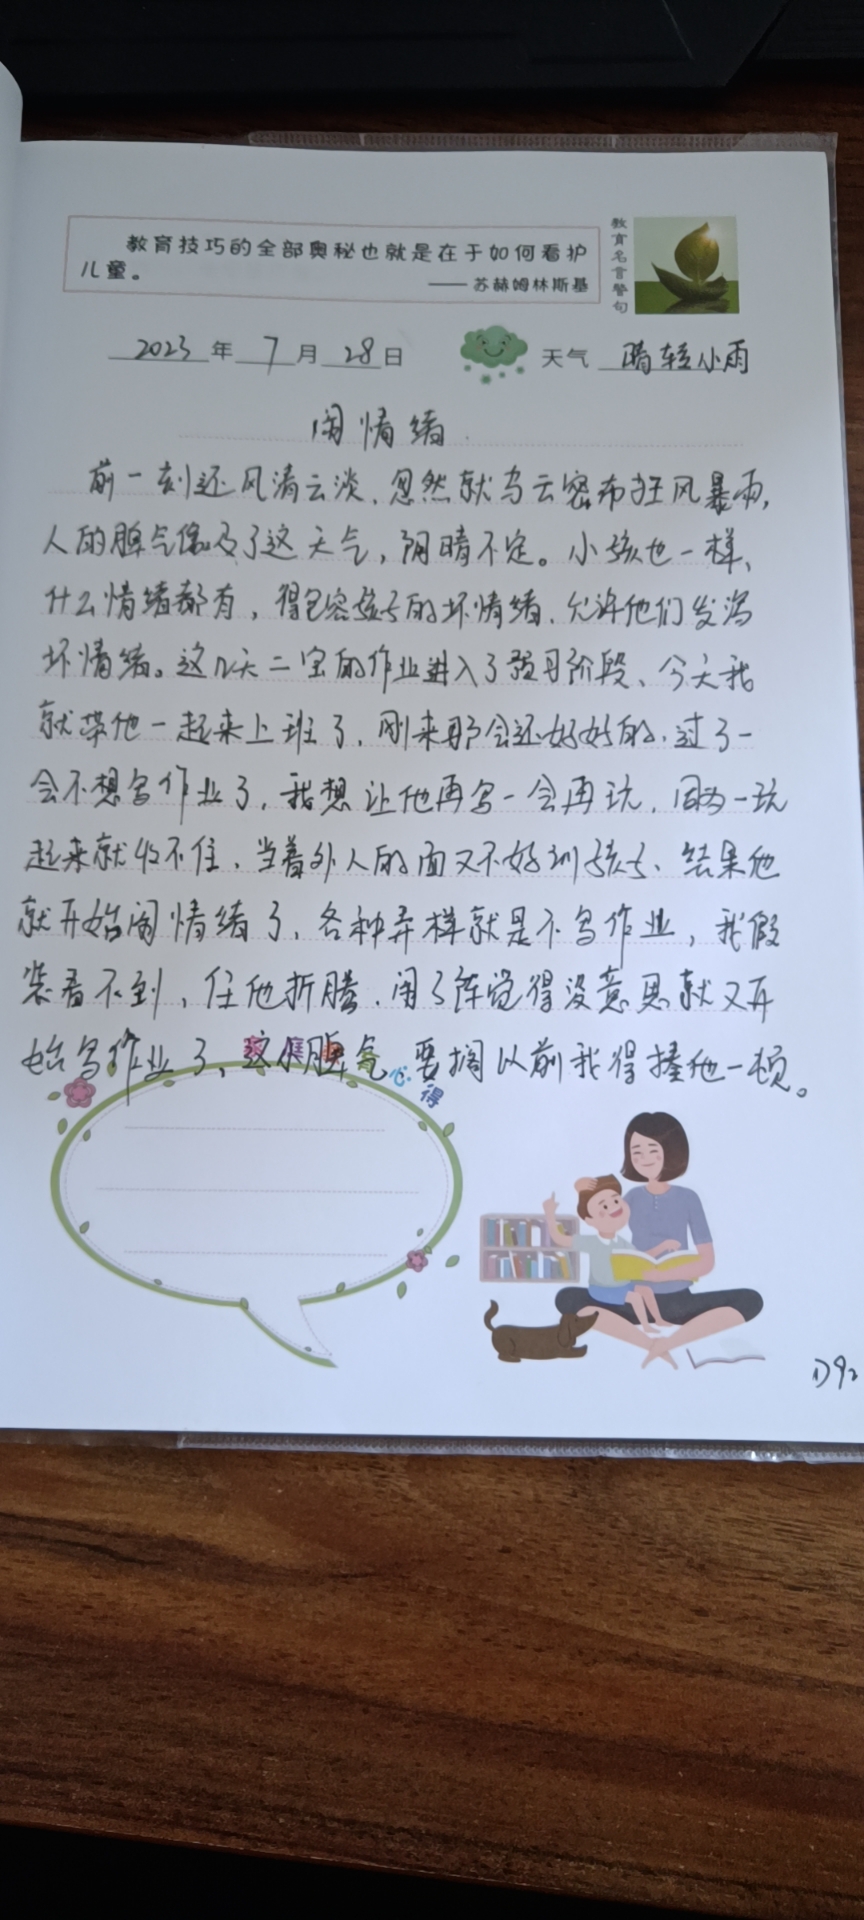 教育技巧的全部奥秘也就是在于如何看护
儿童。
—— 苏赫姆林斯基
教育名言警句
2023年7月28日 天气 晴转小雨
闹情绪
前一刻还风清云淡,忽然就乌云密布狂风暴雨,
人的脾气像极了这天气,阴晴不定。小孩也一样,
什么情绪都有,得包容孩子的坏情绪,允许他们发泄
坏情绪。这几天二宝的作业进入了预习阶段、今天我
就带他一起来上班了,刚来那会还好好的,过了一
会不想写作业了,我想让他再写一会再玩,因为一玩
起来就收不住,当着外人的面又不好训孩子、结果他
就开始闹情绪了,各种弄样就是不写作业,我假
装看不到,任他折腾,闹了阵觉得没意思就又开
始写作业了,这小脾气、要搁以前我得揍他一顿。
心得